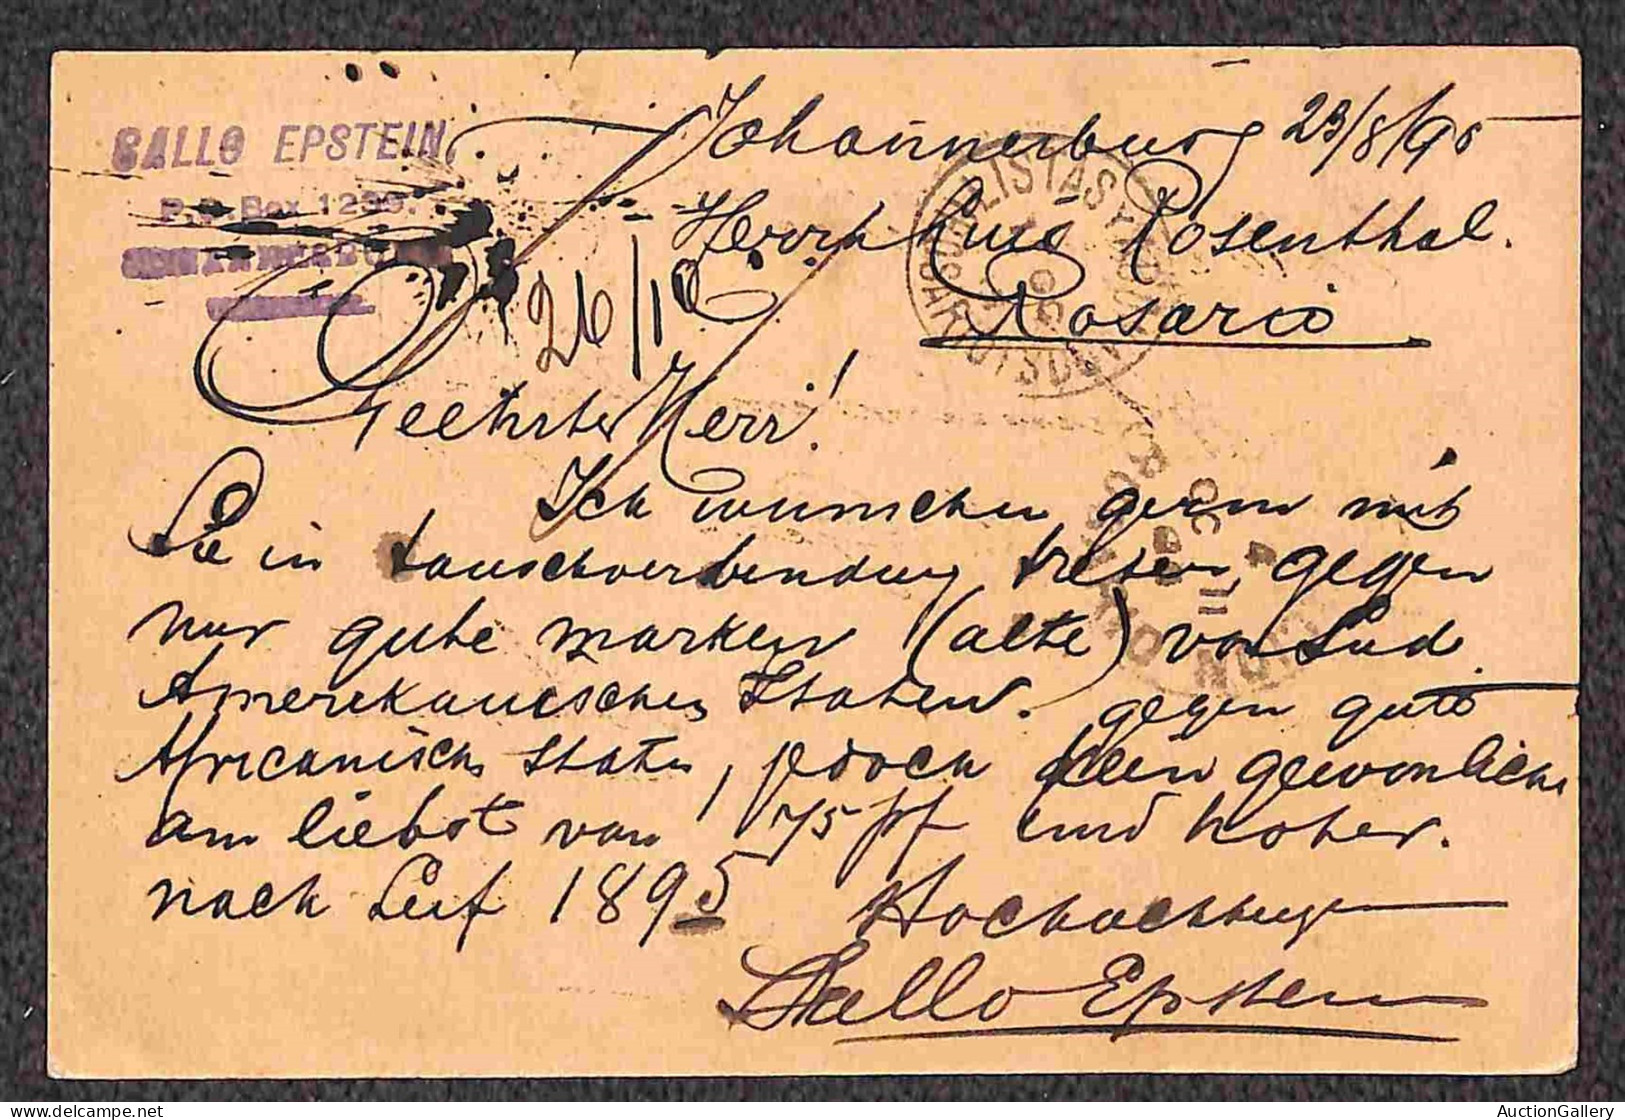 SALLO EPSTEIN.
P.O. Box 1299.
JOHANNESBURG
Johannesburg 23/8/96
Herrn Luis Rosenthal.
Rosario
26/10
Geehrter Herr!
Ich wünschen gern mit
Sie in tauschverbendung treten, gegen
nur gute marken (alte) von Süd.
Amerekanischen Staaten. gegen gute
Africanische Staten, jedoch kein gewonliche
am liebst von 75 pf und hoher.
nach Senf 1895 Hochachtung
Sallo Epstein
AuctionGallery